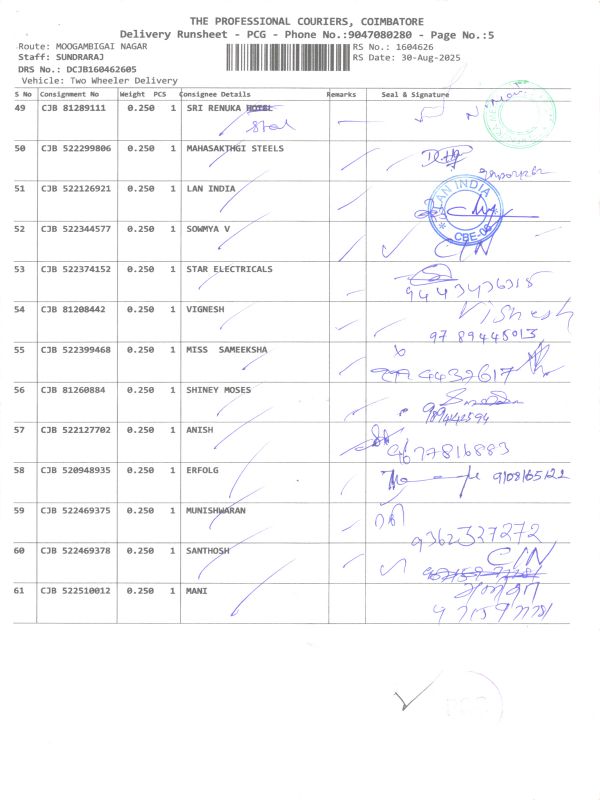 THE PROFESSIONAL COURIERS, COIMBATORE
Delivery Runsheet - PCG - Phone No.:9047080280 - Page No.:5
Route: MOOGAMBIGAI NAGAR RS No.: 1604626
Staff: SUNDRARAJ RS Date: 30-Aug-2025
DRS No.: DCJB160462605
Vehicle: Two Wheeler Delivery
S No Consignment No Weight PCS Consignee Details Remarks Seal & Signature
49 CJB 81289111 0.250 1 SRI RENUKA HOTEL
50 CJB 522299806 0.250 1 MAHASAKTHGI STEELS
51 CJB 522126921 0.250 1 LAN INDIA
LAN INDIA
CBE-06
52 CJB 522344577 0.250 1 SOWMYA V
C/N
53 CJB 522374152 0.250 1 STAR ELECTRICALS
9443436315
54 CJB 81208442 0.250 1 VIGNESH Vishesh
9789445013
55 CJB 522399468 0.250 1 MISS SAMEEKSHA
56 CJB 81260884 0.250 1 SHINEY MOSES
57 CJB 522127702 0.250 1 ANISH
9677816883
58 CJB 520948935 0.250 1 ERFOLG
59 CJB 522469375 0.250 1 MUNISHWARAN
9362327272
60 CJB 522469378 0.250 1 SANTHOSH C/N
61 CJB 522510012 0.250 1 MANI